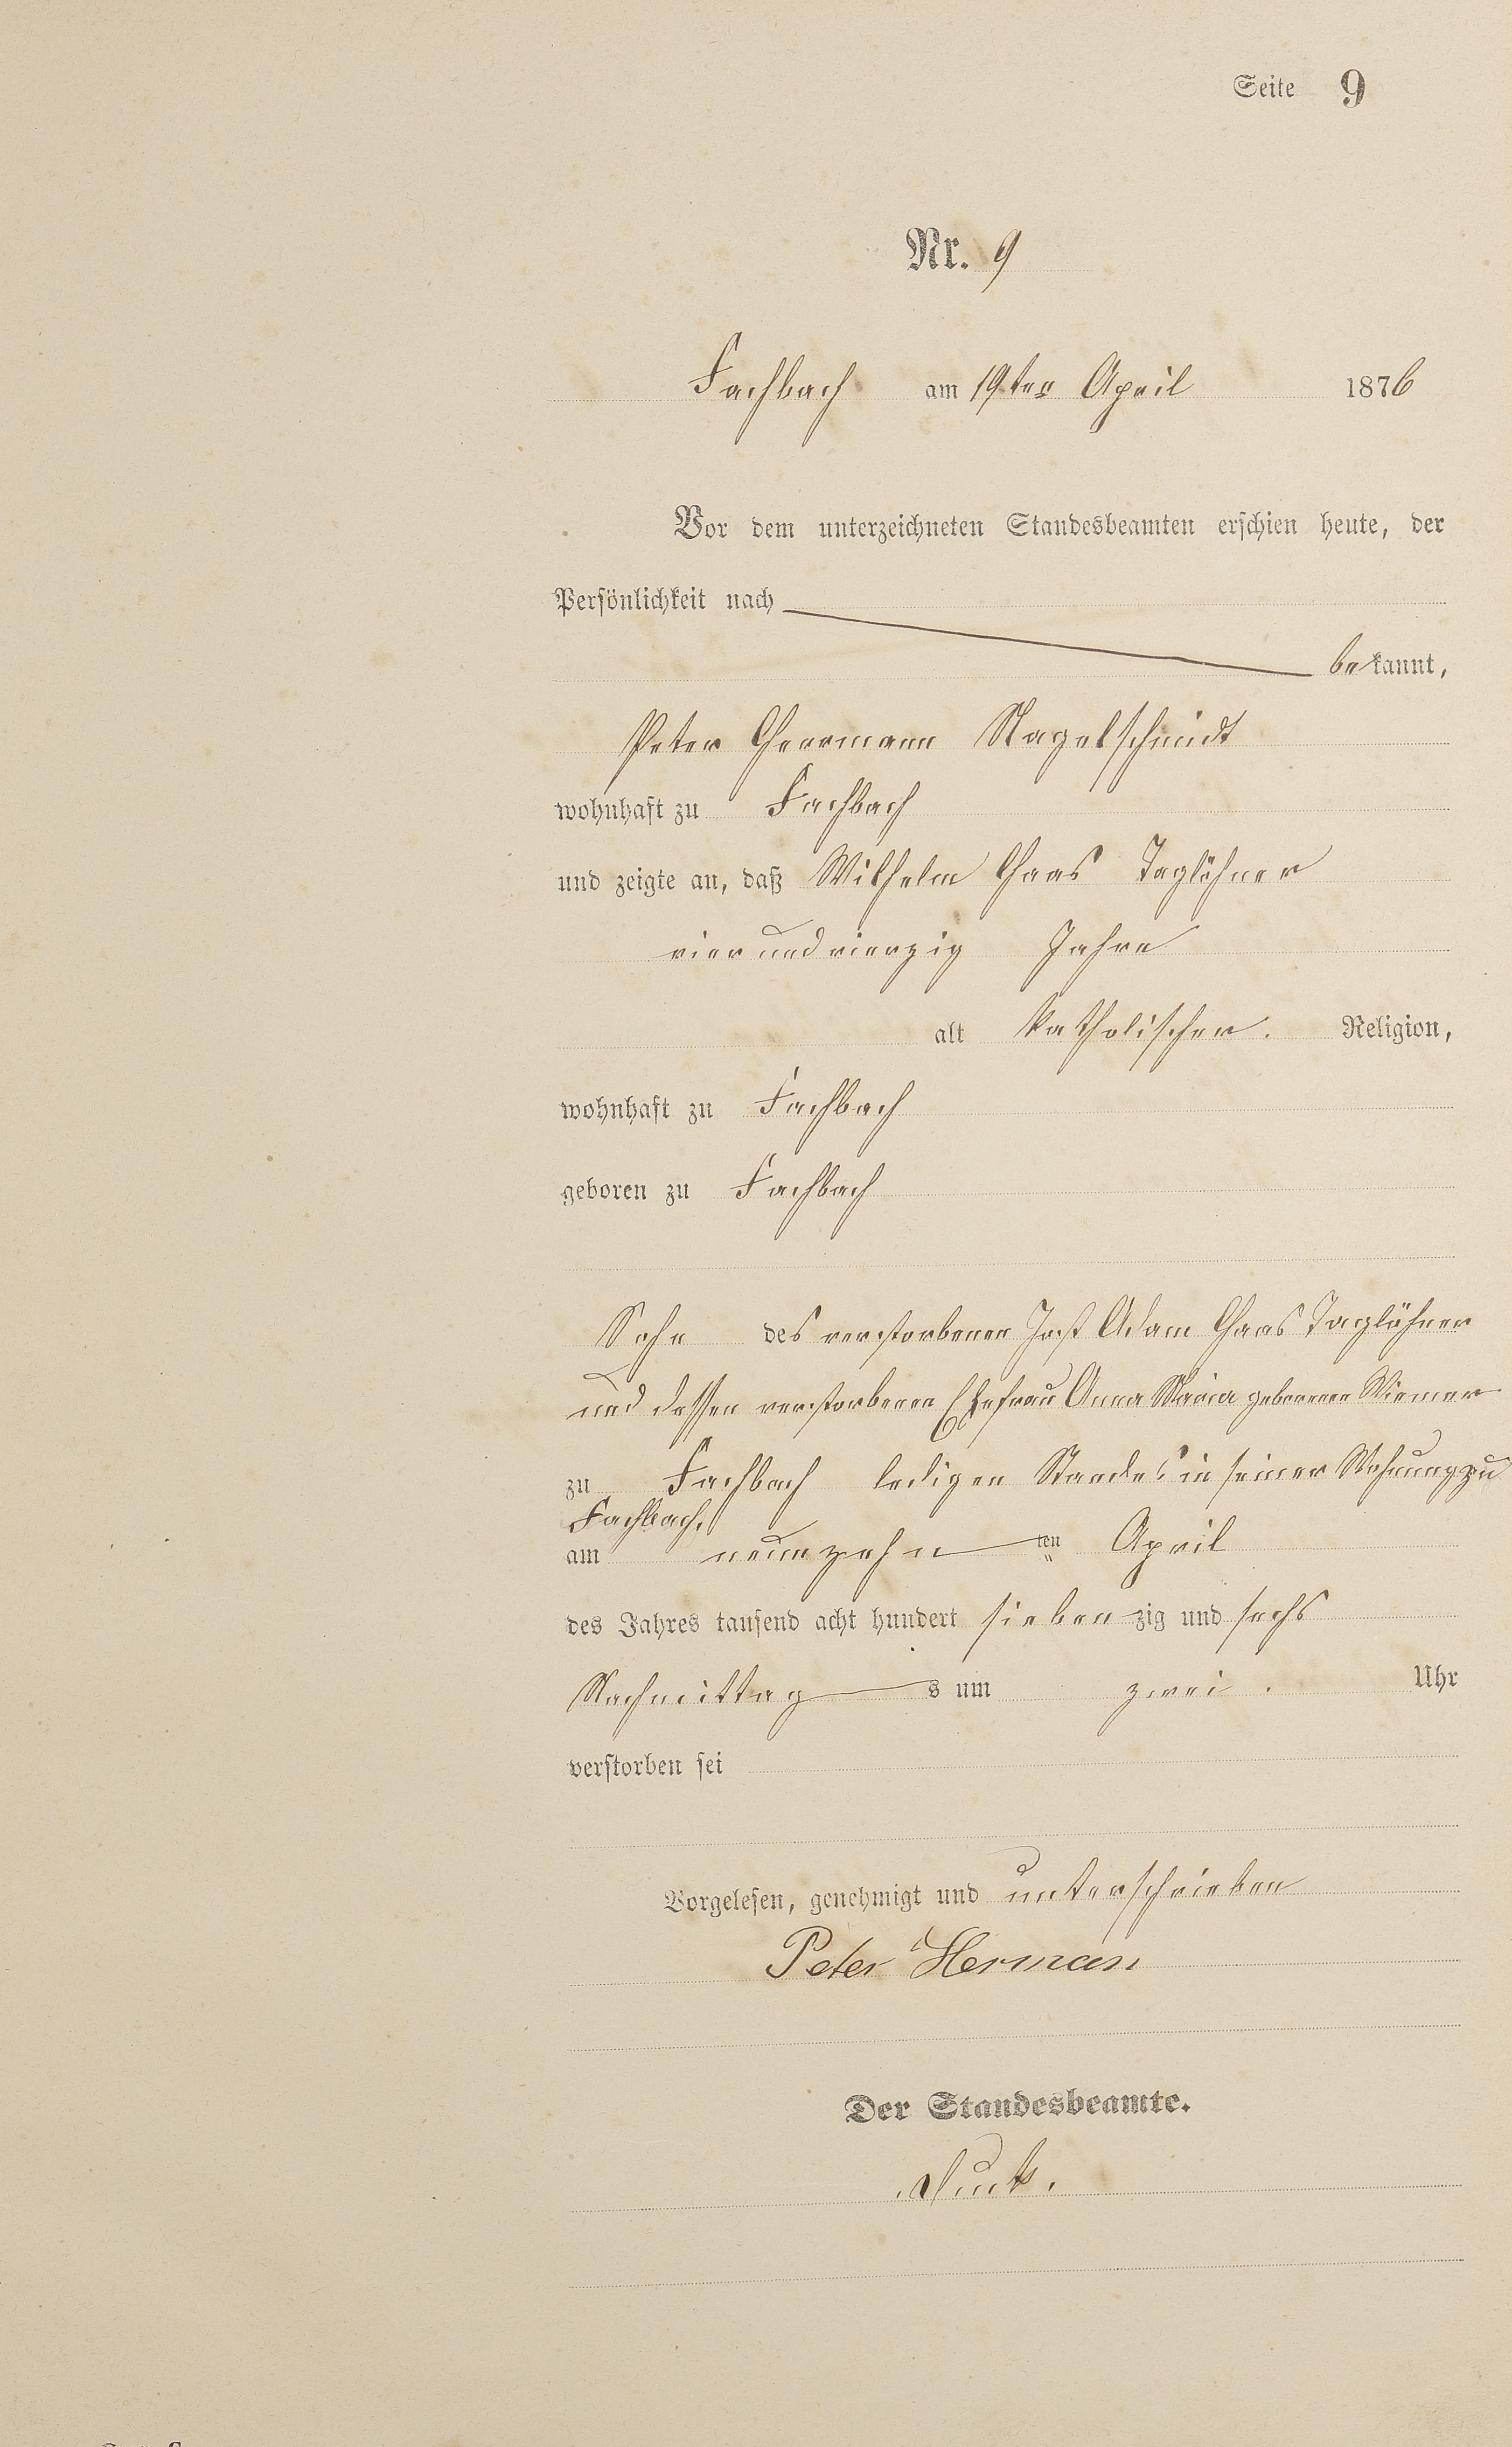 Seite 9
Nr. 9
Fachbach am 19ten April 1876
Vor dem unterzeichneten Standesbeamten erschien heute, der
Persönlichkeit nach
bekannt,
Peter Herrmann Nagelschmidt
wohnhaft zu Fachbach
und zeigte an, daß Wilhelm Haas Taglöhner
vierundvierzig Jahre
alt katholischer Religion,
wohnhaft zu Fachbach
geboren zu Fachbach
Sohn des verstorbenen Jost Adam Haas Taglöhner
und dessen verstorbenen Ehefrau Anna Maria geborenen Wiemer
zu Fachbach ledigen Standes in seiner Wohnung zu
Fachbach,
am neunzehnten April
des Jahres tausend acht hundert siebenzig und sechs
Nachmittags um zwei Uhr
verstorben sei
Vorgelesen, genehmigt und unterschrieben
Peter Herman
Der Standesbeamte.